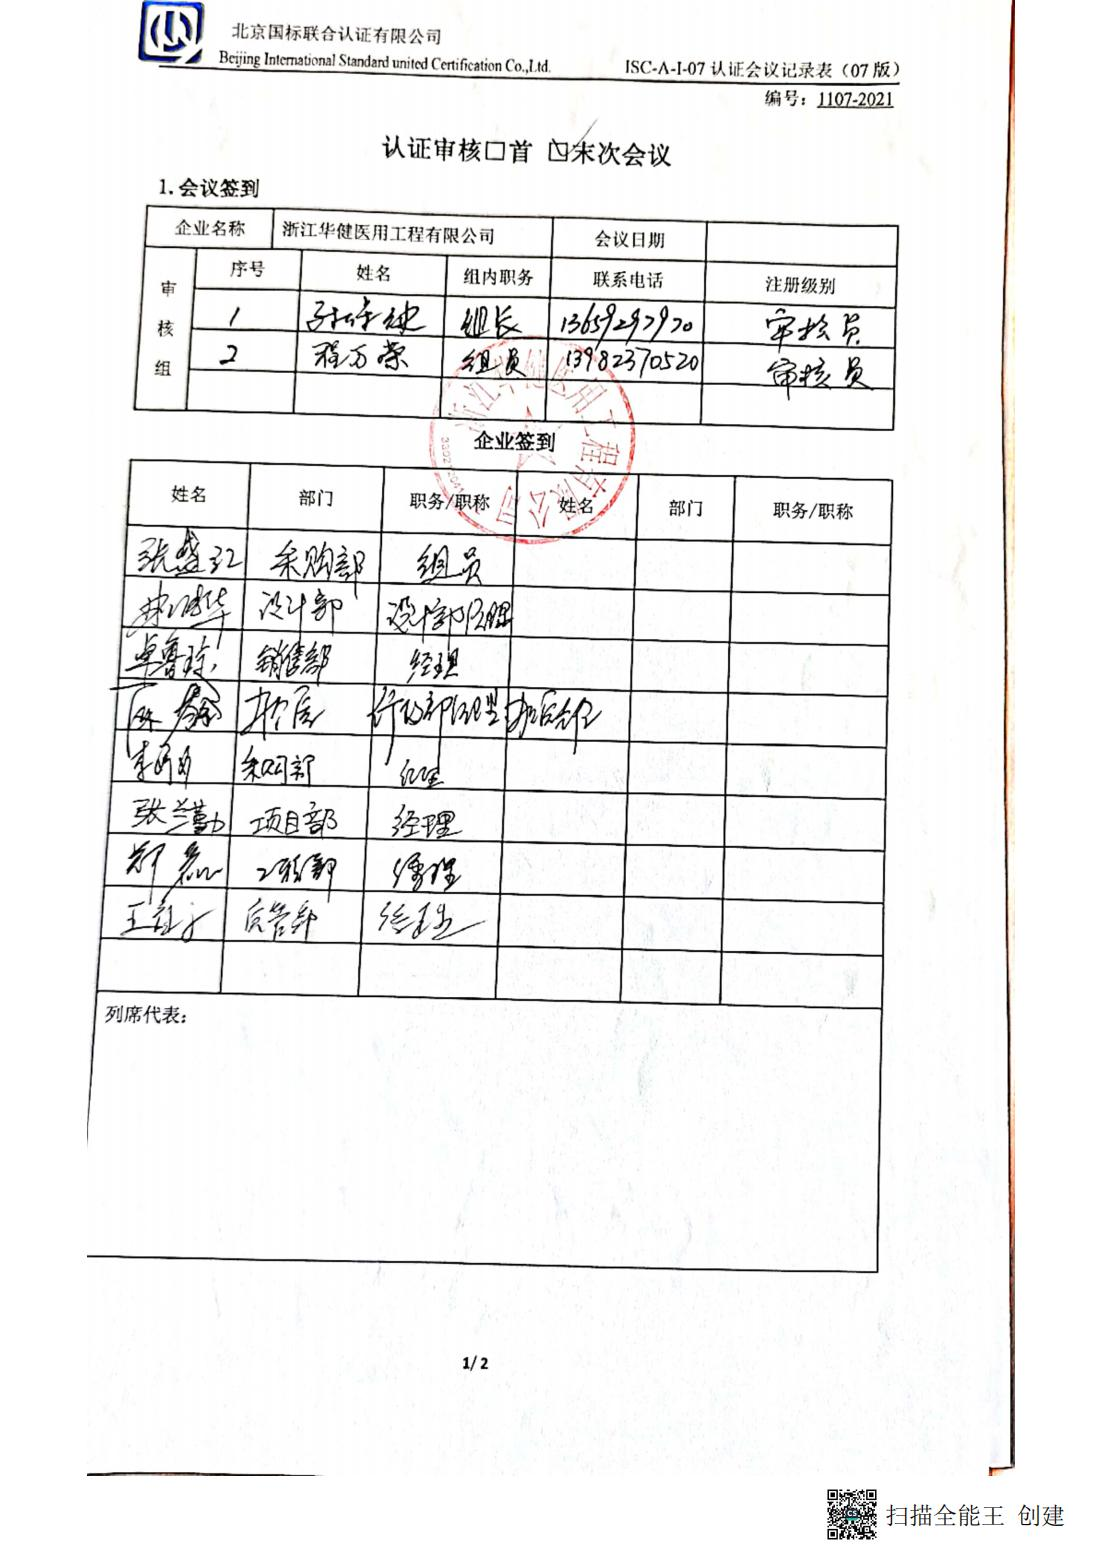 北京国标联合认证有限公司
Beijing International Standard united Certification Co.,Ltd.
ISC-A-I-07 认证会议记录表（07 版）
编号：1107-2021
认证审核□首 ☑末次会议
1.会议签到
企业名称 浙江华健医用工程有限公司 会议日期
审核组 序号 姓名 组内职务 联系电话 注册级别
1 组长 13659297970 审核员
2 程方荣 组员 13982370520 审核员
企业签到
姓名 部门 职务/职称 姓名 部门 职务/职称
张盛江 采购部 组员
设计部 设计部经理
卓鲁琼 销售部 经理
采购部 经理
张兰勤 项目部 经理
郑磊 工程部 经理
质管部
列席代表：
1/ 2
扫描全能王 创建